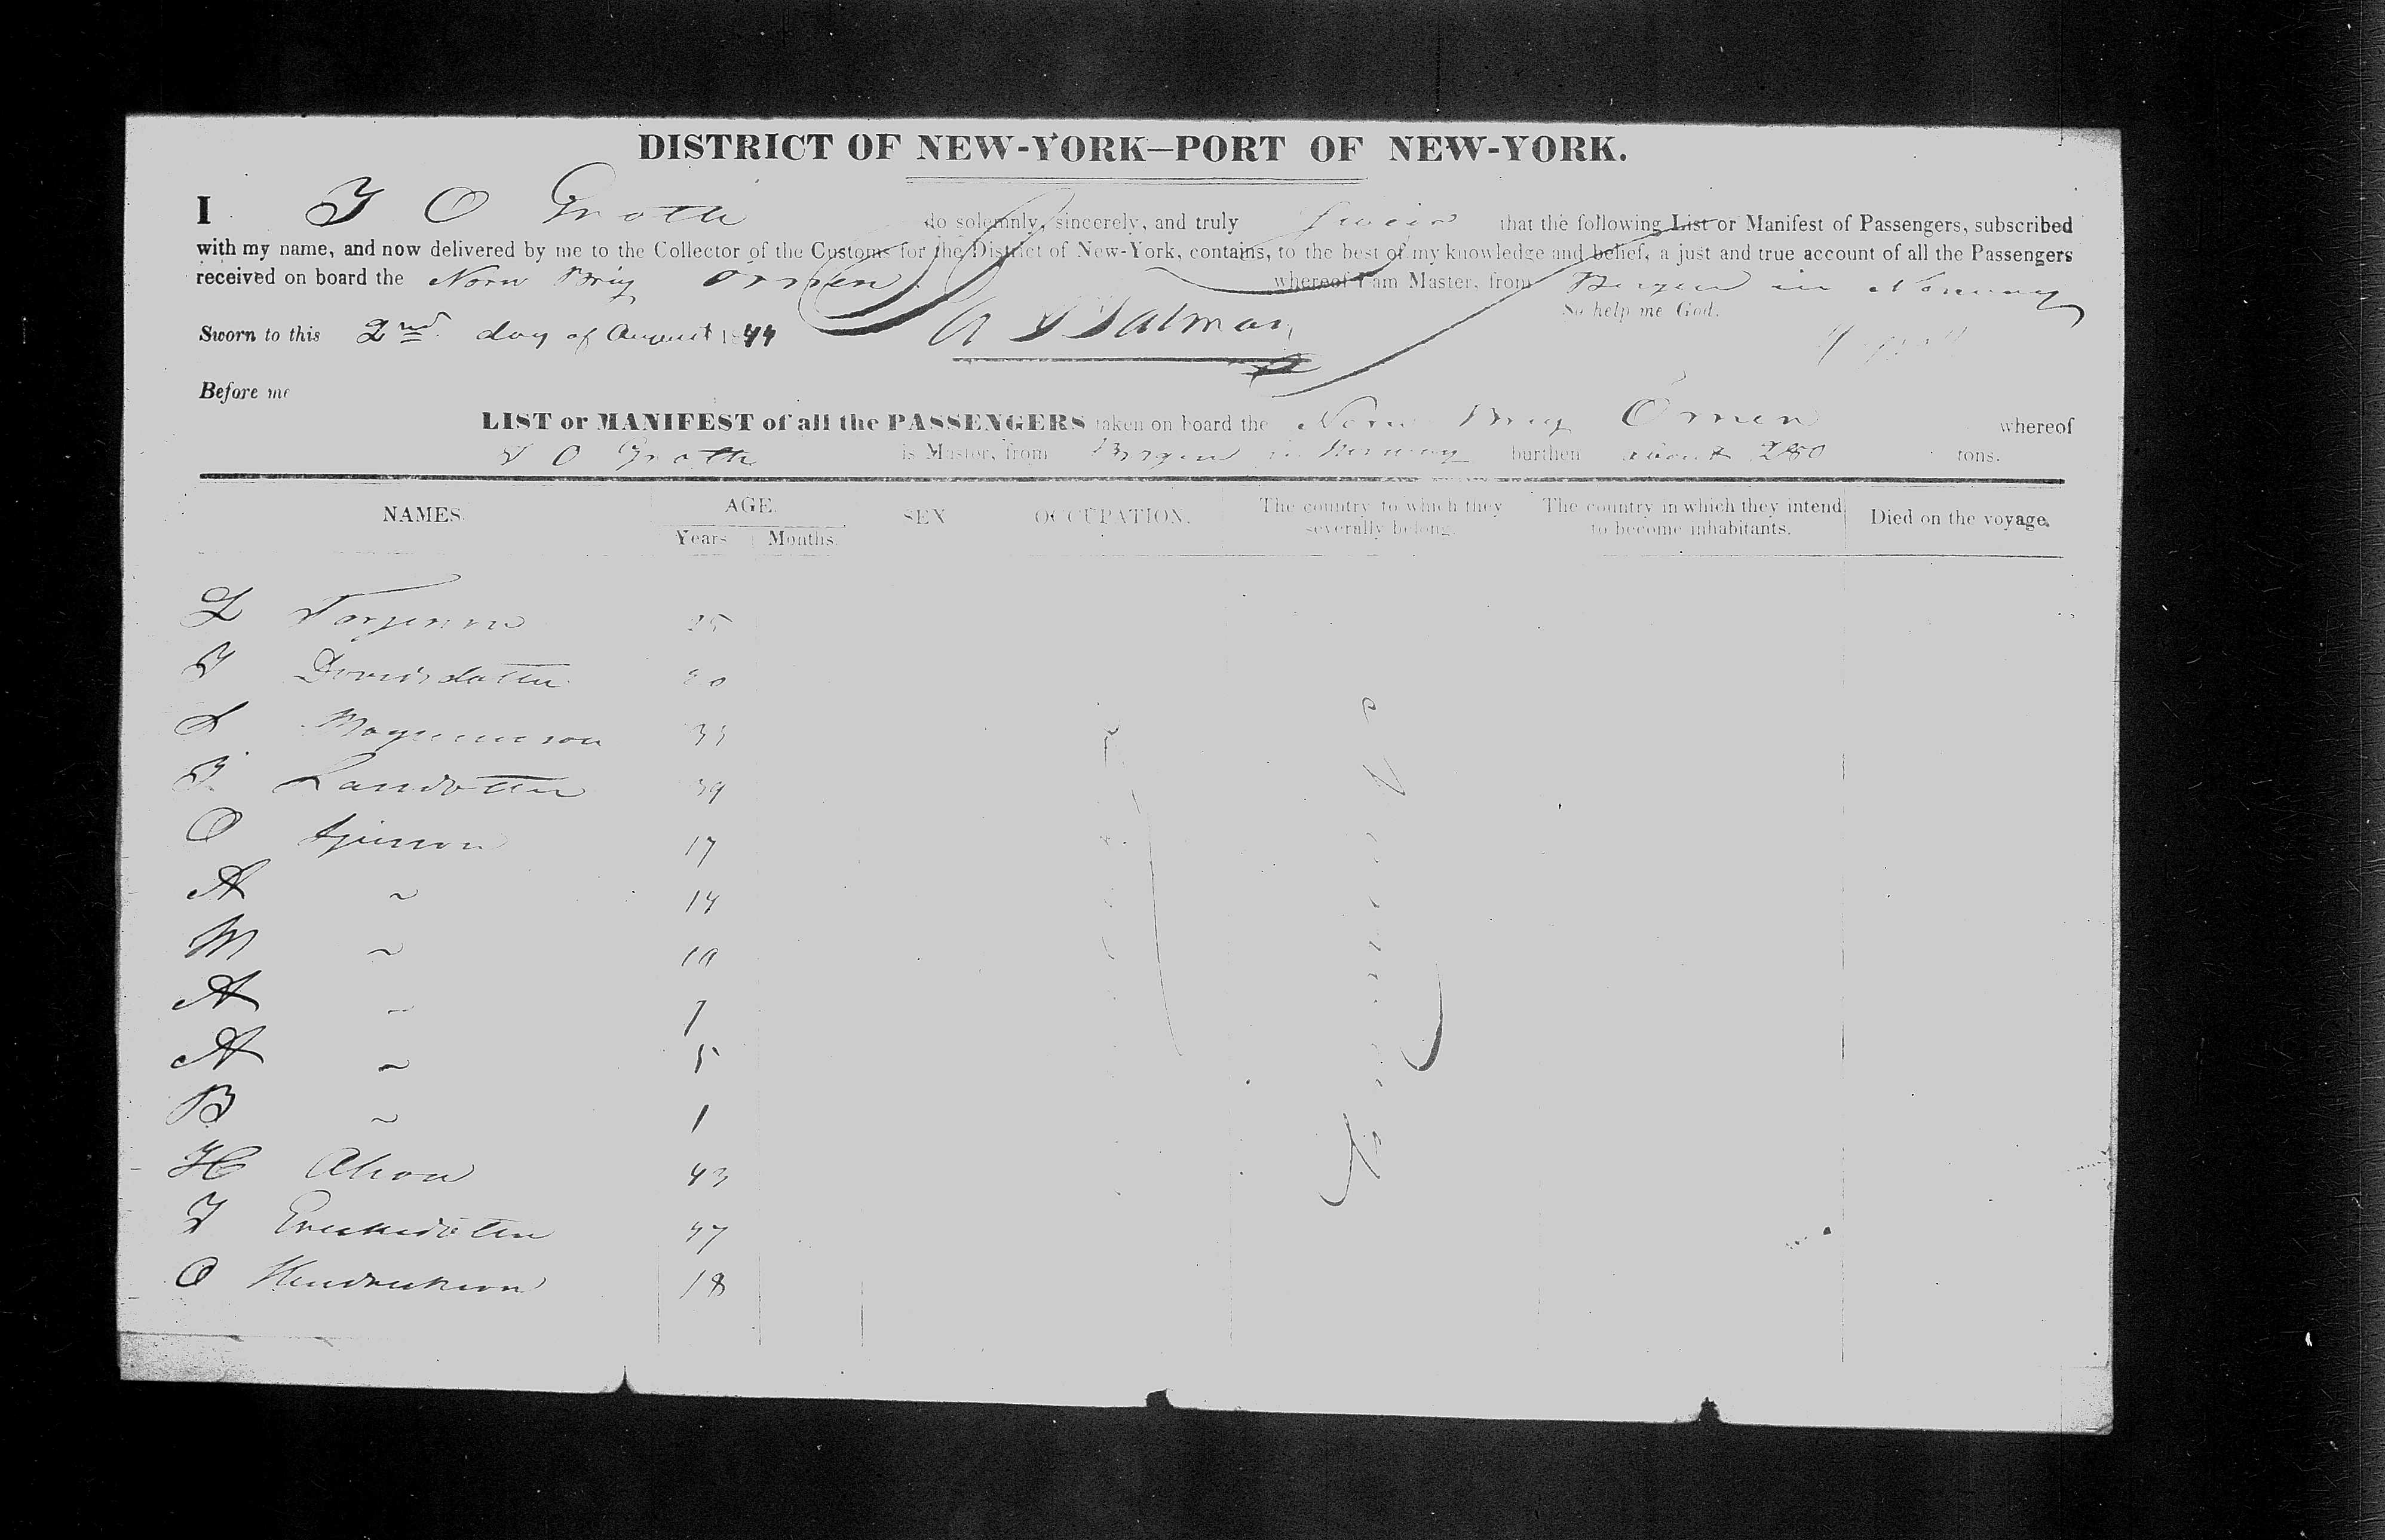 DISTRICT OF NEW-YORK—PORT OF NEW-YORK.
I T O Groth do solemnly, sincerely, and truly swear that the following List or Manifest of Passengers, subscribed
with my name, and now delivered by me to the Collector of the Customs for the District of New-York, contains, to the best of my knowledge and belief, a just and true account of all the Passengers
received on board the Norw Brig Ornen whereof I am Master, from Bergen in Norway
So help me God.
Sworn to this 2nd day of August 1844
Before me
LIST or MANIFEST of all the PASSENGERS taken on board the Norw Brig Ornen whereof
T O Groth is Master, from Bergen in Norway burthen about 280 tons.
NAMES. AGE. SEX OCCUPATION. The country to which they severally belong. The country in which they intend to become inhabitants. Died on the voyage.
Years Months.
L 25
T Davidsdatter
Magnusson 33
Larsdotter 39
O 17
A ~ 14
M ~ 10
A ~ 7
A ~ 5
B ~ 1
H Olson 43
T 47
O Hendrickson 18